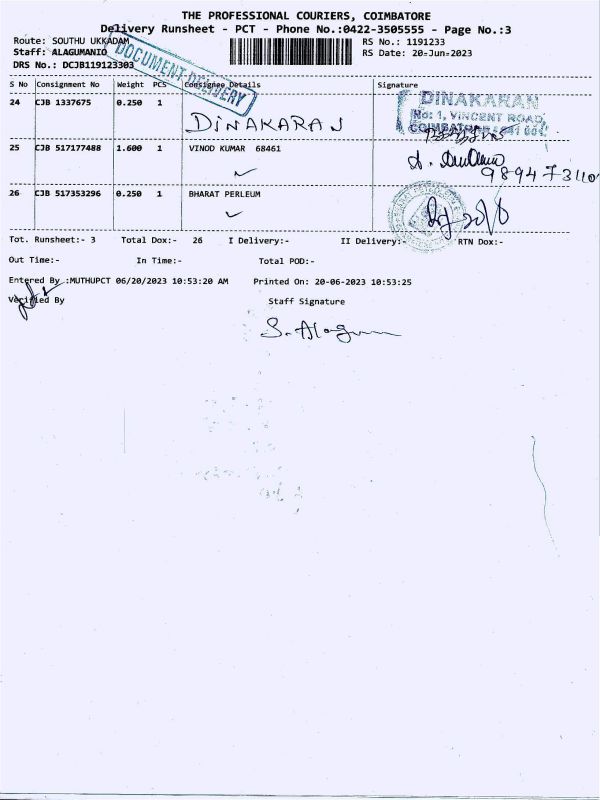 THE PROFESSIONAL COURIERS, COIMBATORE
Delivery Runsheet - PCT - Phone No.:0422-3505555 - Page No.:3
Route: SOUTHU UKKADAM
RS No.: 1191233
Staff: ALAGUMANIO
RS Date: 20-Jun-2023
DRS No.: DCJB119123303
DOCUMENT DELIVERY
S No Consignment No Weight PCS Consignee Details Signature
24 CJB 1337675 0.250 1 DINAKARAN
DINAKARAN
No: 1, VINCENT ROAD,
25 CJB 517177488 1.600 1 VINOD KUMAR 68461
26 CJB 517353296 0.250 1 BHARAT PERLEUM
Tot. Runsheet:- 3 Total Dox:- 26 I Delivery:- II Delivery:- RTN Dox:-
Out Time:- In Time:- Total POD:-
Entered By :MUTHUPCT 06/20/2023 10:53:20 AM Printed On: 20-06-2023 10:53:25
Verified By Staff Signature
S. Alagum